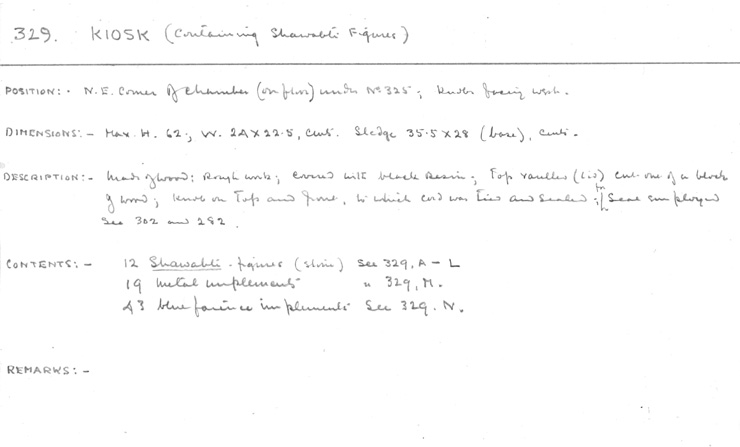 329. KIOSK (Containing Shawabti Figures)
POSITION: - N.E. Corner of Chamber (on floor) under No 325; Knobs facing West.
DIMENSIONS: - Max. H. 62; W. 24 x 22.5, cents. Sledge 35.5 x 28 (base), cents.
DESCRIPTION: - Made of wood: Rough work; covered with black resin; Top vaulted (Lid) cut out of a block
of wood; Knobs on Top and front, to which cord was tied and sealed; for Seal employed
See 302 and 282.
CONTENTS: - 12 Shawabti-figures (stone) See 329, A - L
19 metal implements " 329, M.
43 blue faience implements See 329. N.
REMARKS: -